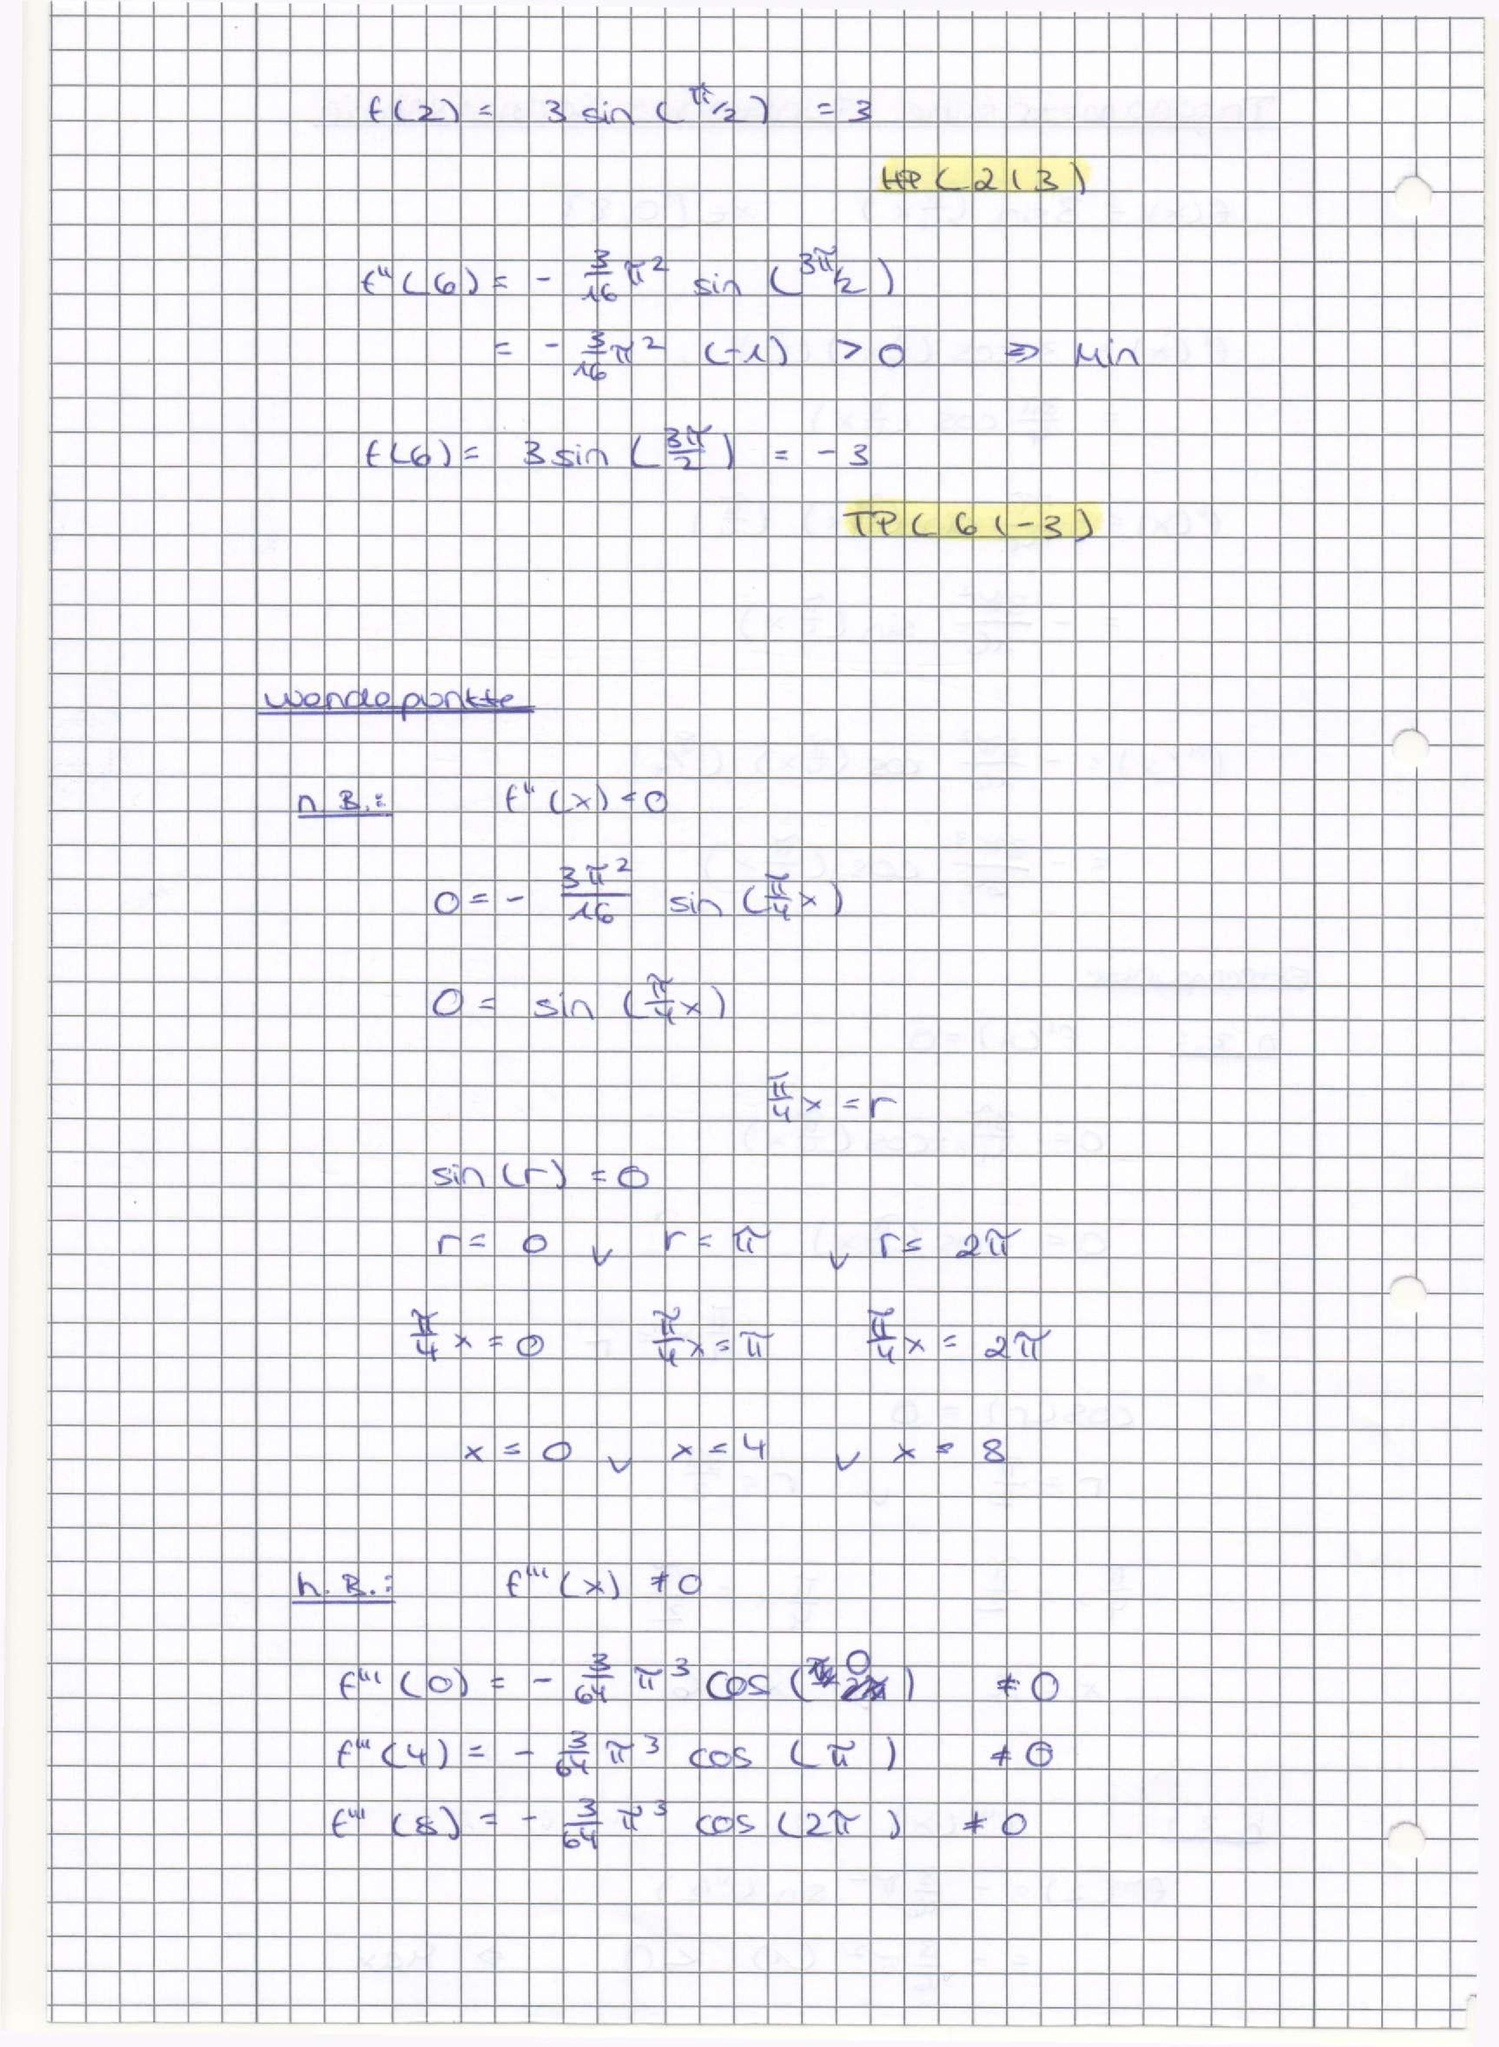 f(2) = 3 sin (π/2) = 3
HP (2|3)
f''(6) = - 3/16 π² sin (3π/2)
= - 3/16 π² (-1) > 0 ⇒ Min
f(6) = 3 sin (3π/2) = -3
TP (6|-3)
Wendepunkte
n.B.: f''(x) = 0
0 = - 3π²/16 sin (π/4 x)
0 = sin (π/4 x)
π/4 x = r
sin (r) = 0
r = 0 ∨ r = π ∨ r = 2π
π/4 x = 0 π/4 x = π π/4 x = 2π
x = 0 ∨ x = 4 ∨ x = 8
h.B.: f'''(x) ≠ 0
f'''(0) = - 3/64 π³ cos (0) ≠ 0
f'''(4) = - 3/64 π³ cos (π) ≠ 0
f'''(8) = - 3/64 π³ cos (2π) ≠ 0